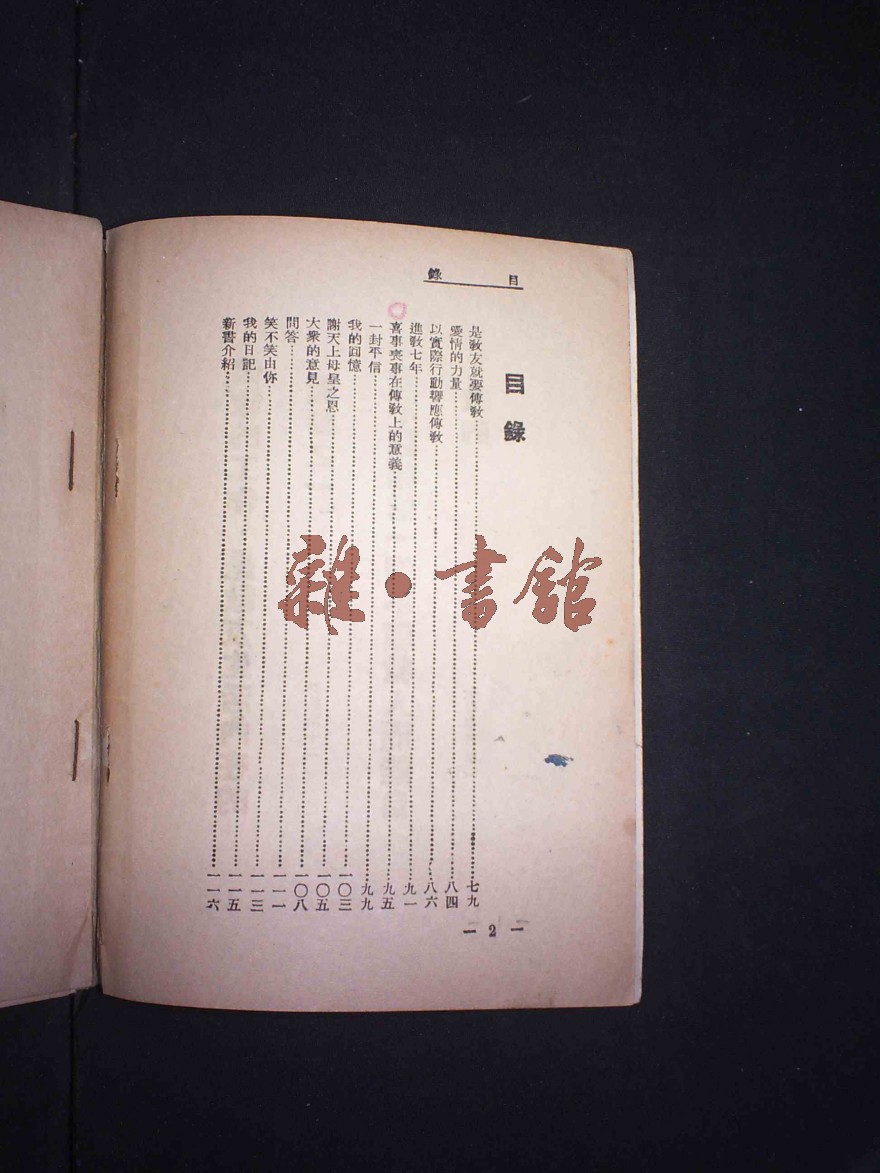 目錄
目錄
是教友就要傳教……七九
愛情的力量……八四
以實際行動響應傳教……八六
進教七年……九一
喜事喪事在傳教上的意義……九五
一封平信……九九
我的回憶……一〇三
謝天上母皇之恩……一〇五
大衆的意見……一〇八
問答……一一一
笑不笑由你……一一三
我的日記……一一五
新書介紹……一一六
— 2 —
雜·書館